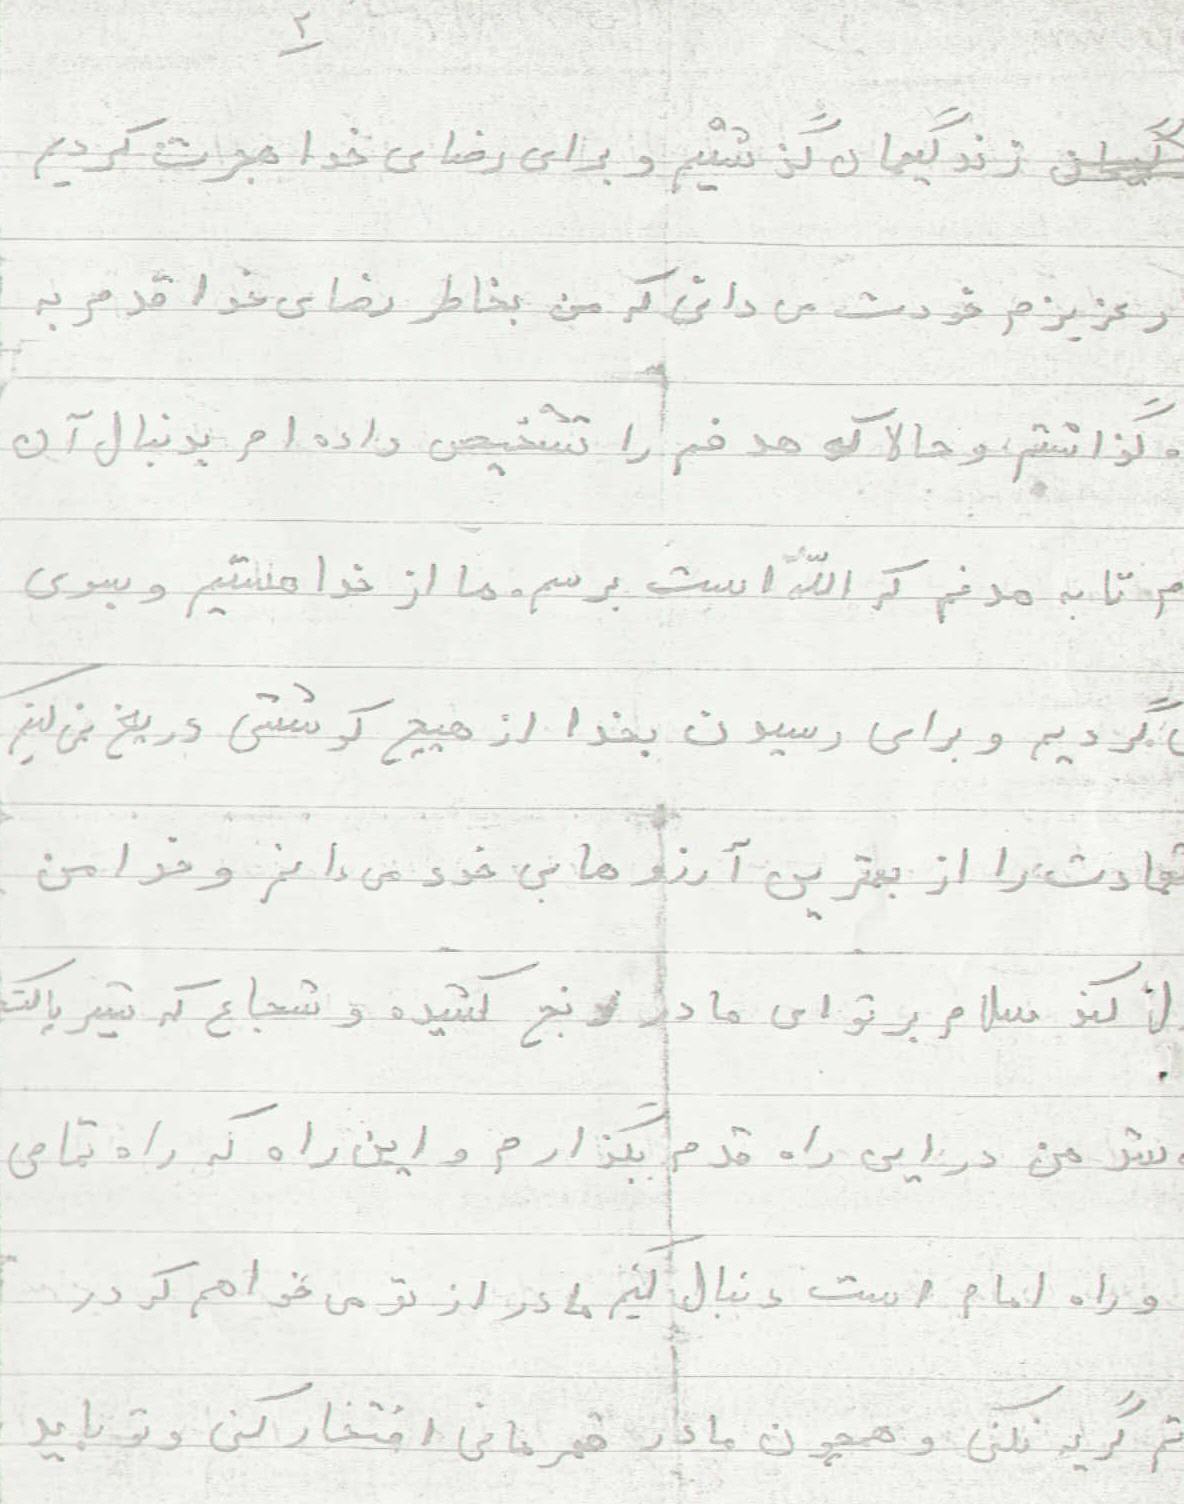 ۲
زندگیمان گذشتیم و برای رضای خدا هجرت کردیم
عزیزم خودت می دانی که من بخاطر رضای خدا قدم به
گذاشتم و حالا که هدفم را تشخیص داده ام بدنبال آن
تا به هدفم که اللّه است برسم. ما از خدا هستیم و بسوی
گردیم و برای رسیدن بخدا از هیچ کوششی دریغ نمی کنیم
را از بهترین آرزوهایی خود می دانم و خدا من
کند سلام بر تو ای مادر رنج کشیده و شجاع که شیر پاکت
شد من در این راه قدم بگذارم و این راه که راه تمامی
و راه امام است دنبال کنیم مادر از تو می خواهم که در
گریه نکنی و همچون مادر قهرمانی افتخار کنی و تو باید